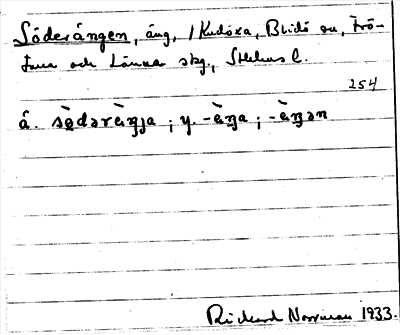 Söderängen, äng, i Kudoxa, Blidö sn, Frö-
tuna och Länna skg., Sthlms l.
254
å. sö̀dərèŋja ; y. -èŋa ; -èŋən
Rickard Norrman 1933.